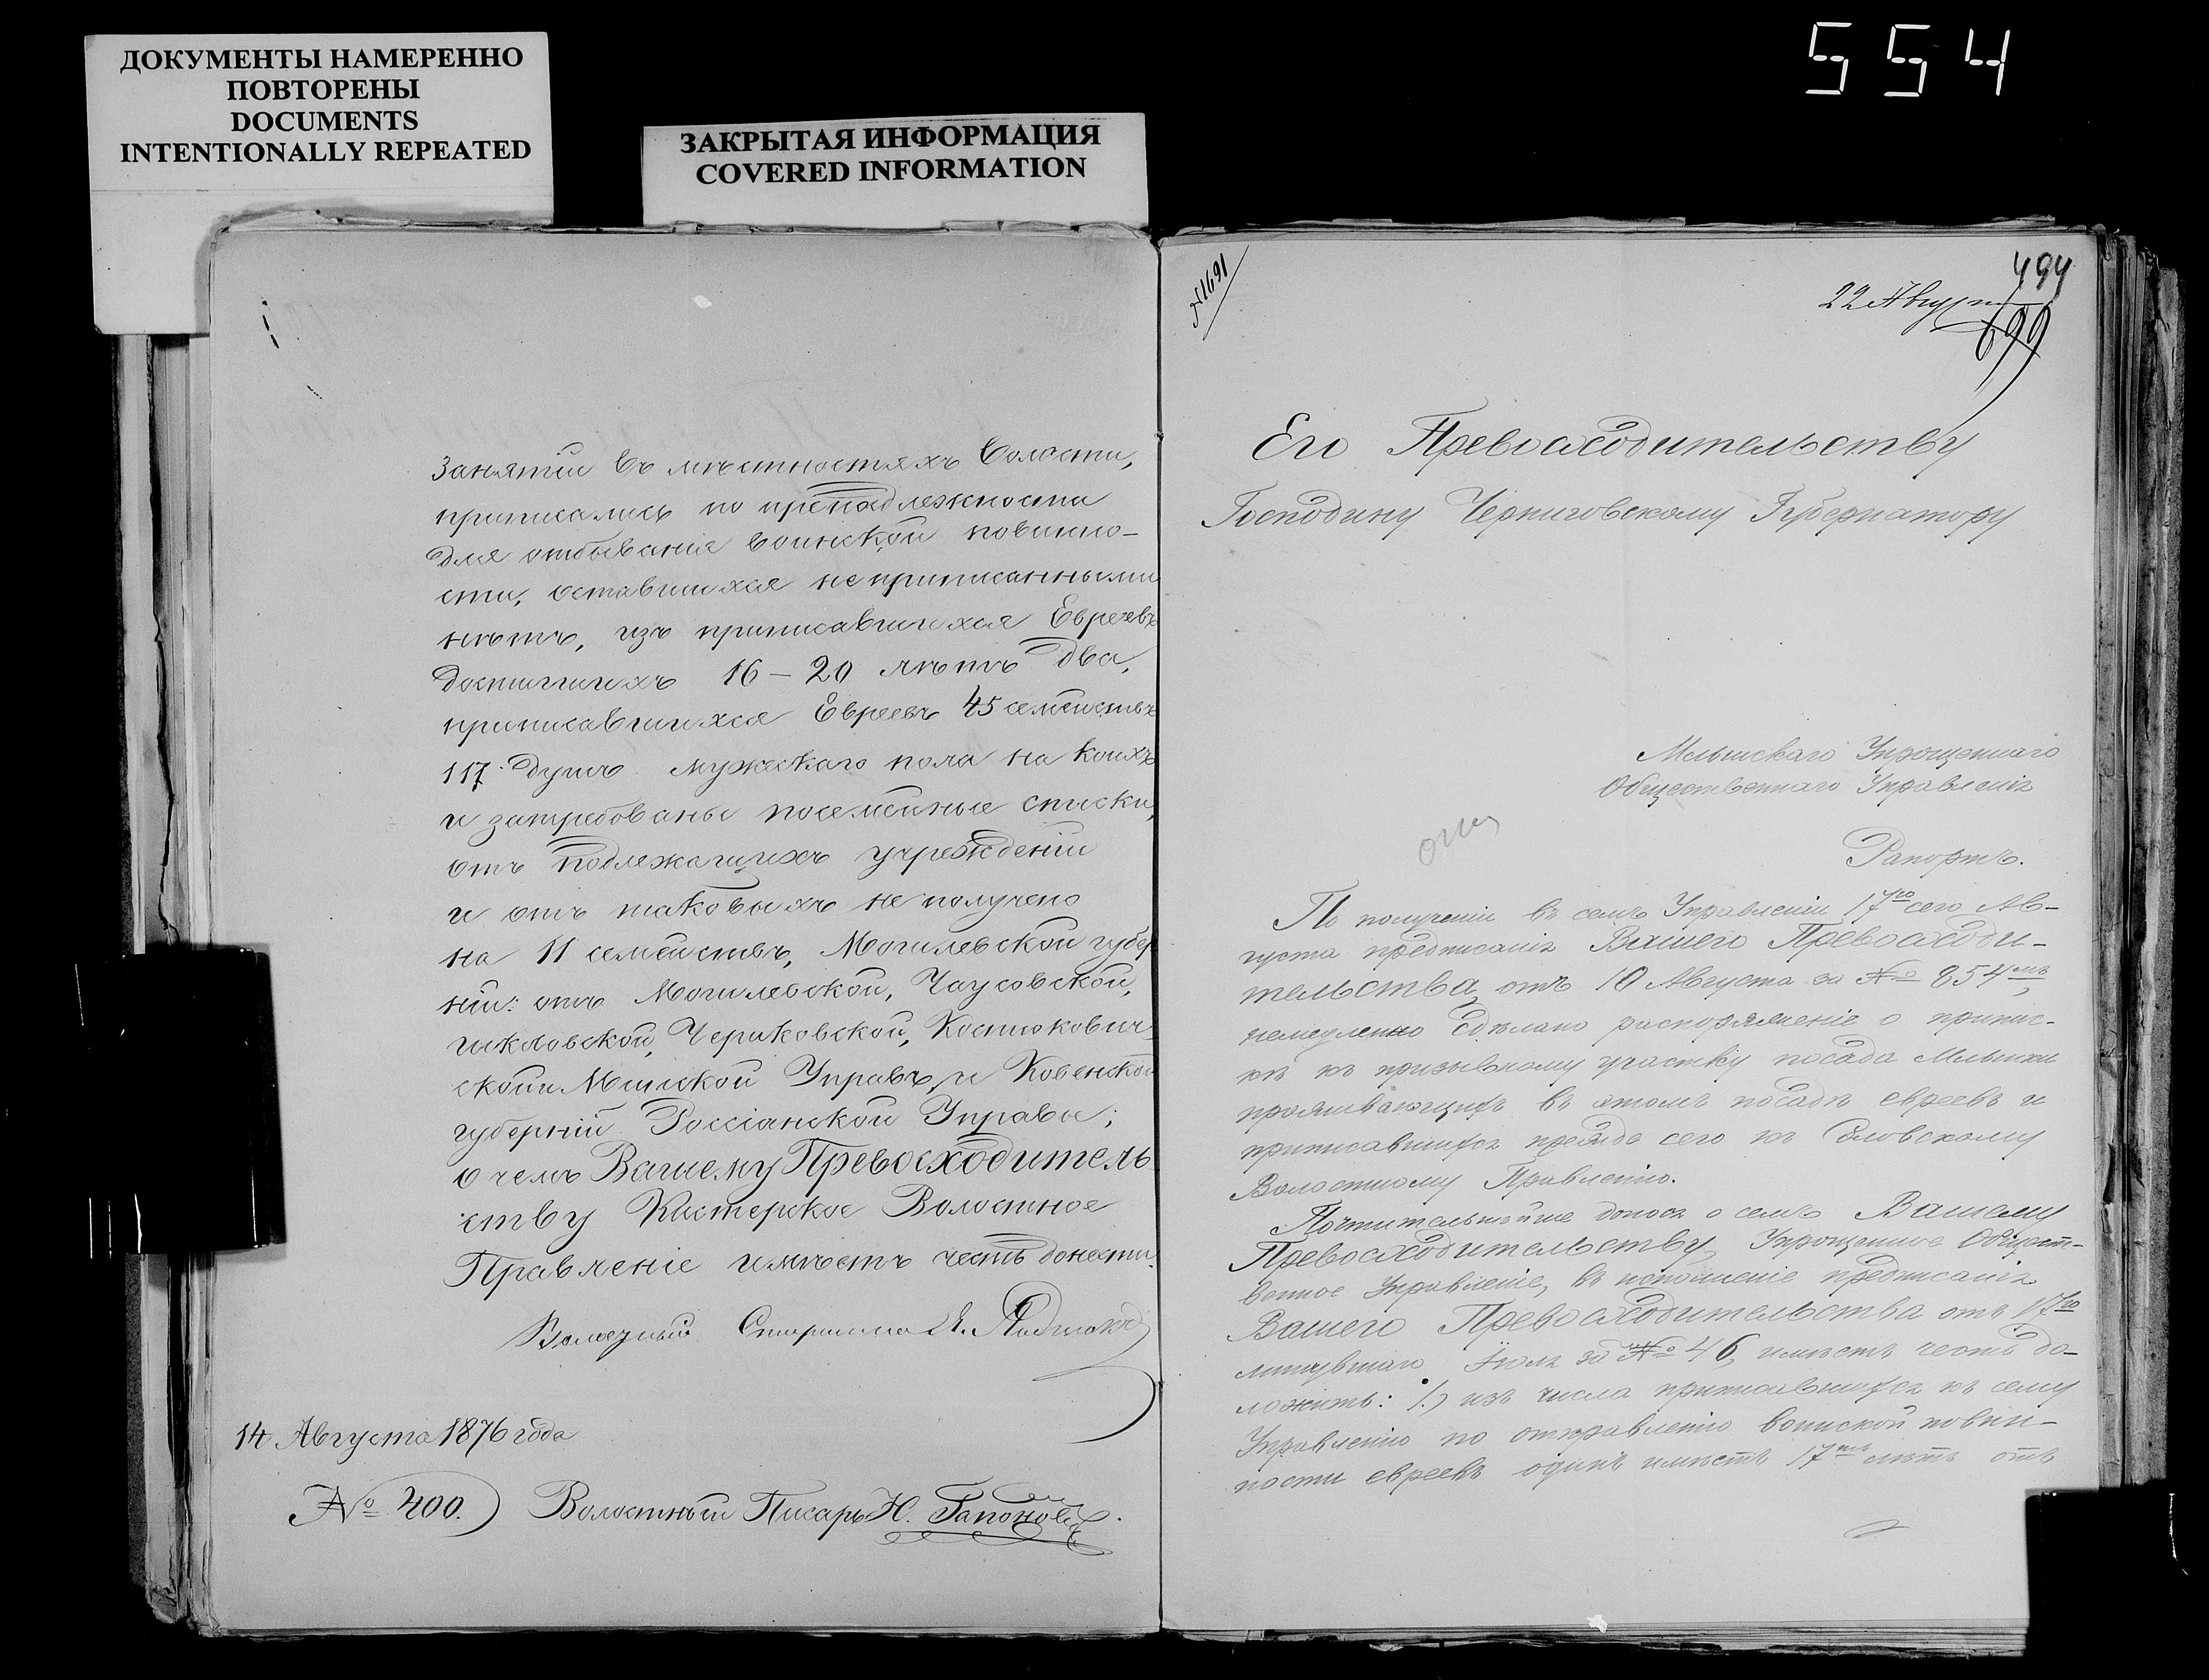 ДОКУМЕНТЫ НАМЕРЕННО
ПОВТОРЕНЫ
DOCUMENTS
INTENTIONALLY REPEATED
ЗАКРЫТАЯ ИНФОРМАЦИЯ
COVERED INFORMATION
554
занятій въ мѣстностяхъ волости,
приписались по пренадлежности
для отбыванія воинской повинно-
сти, оставшихся не приписанными
нѣтъ, изъ приписавшихся Евреевъ
достигшихъ 16-20 лѣтъ два,
приписавшихся Евреевъ 45 семействъ
117 душъ мужескаго пола на коихъ
и затребованы посемейные списки,
отъ подлежащихъ учрежденій
и отъ таковыхъ не получено
на 11 семействъ, Могилевской губер
ніи: отъ Могилевской, Чаусовской,
шкловской, Чериковской, Костюкович
ской и Мшской Управъ, и Ковенской
губерніи Россіанской Управы;
о чемъ Вашему Превосходитель
ству Кистерское Волостное
Правленіе имѣетъ честь донести.
Волостный Старшина
14 Августа 1876 года
№ 400. Волостный Писарь Н. Гапоновъ.
№1691
494
22 Августа
699
Его Превосходительству
Господину Черниговскому Губернатору
Мглинскаго Упрощеннаго
Общественнаго Управленія
Рапортъ.
По полученіи въ семъ Управленіи 17го сего Ав-
густа предписанія Вашего Превосходи-
тельства, отъ 10 Августа за № 854мъ,
немедленно сдѣлано распоряженіе о припис-
кѣ къ призывному участку посада
проживающихъ въ этомъ посадѣ евреевъ и
приписавшихся прежде сего къ
Волостному Правленію.
Почтительнѣйше донося о семъ Вашему
Превосходительству, Упрощенное Общест-
венное Управленіе, въ исполненіе предписанія
Вашего Превосходительства отъ 17го
минувшаго Іюля за № 46, имѣетъ честь до-
ложить: 1.) изъ числа приписавшихся къ сему
Управленію по отправленію воинской повин-
ности евреевъ одинъ имѣетъ 17ть лѣтъ отъ